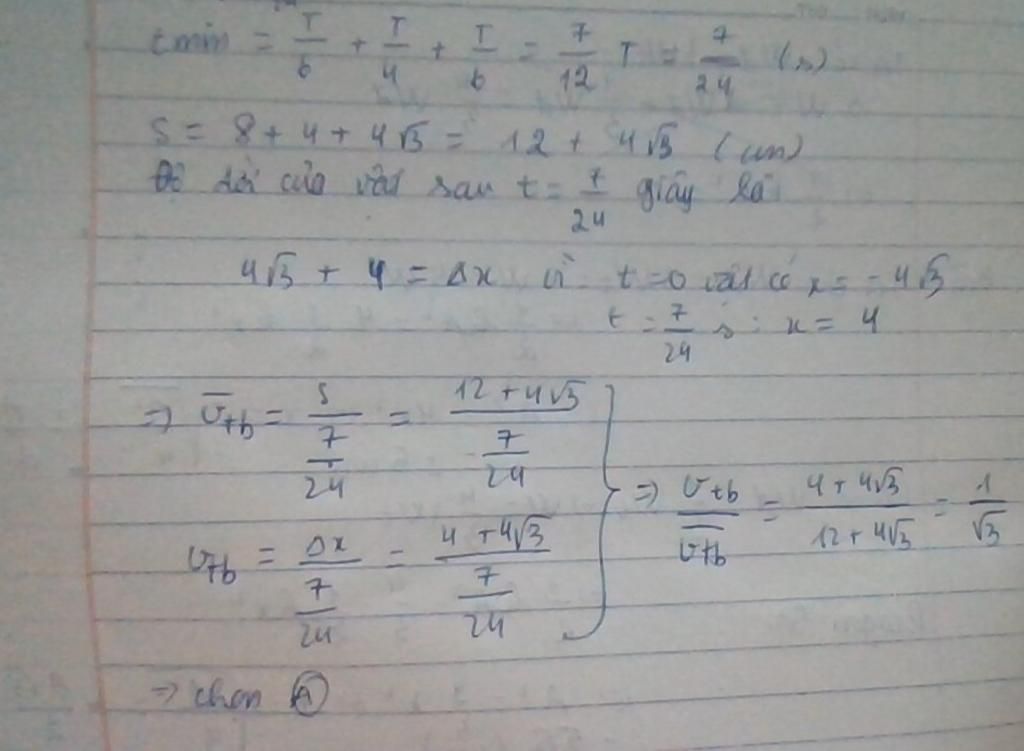 tmin = T/6 + T/4 + T/6 = 7/12 T = 7/24 (s)
S = 8 + 4 + 4√3 = 12 + 4√3 (cm)
Độ dời của vật sau t = 7/24 giây là
4√3 + 4 = Δx vì t=0 vật có x = -4√3
t = 7/24 s : x = 4
=> v̅tb = S/(7/24) = (12 + 4√3)/(7/24)
vtb = Δx/(7/24) = (4 + 4√3)/(7/24)
=> vtb/v̅tb = (4 + 4√3)/(12 + 4√3) = 1/√3
=> chọn Ⓐ